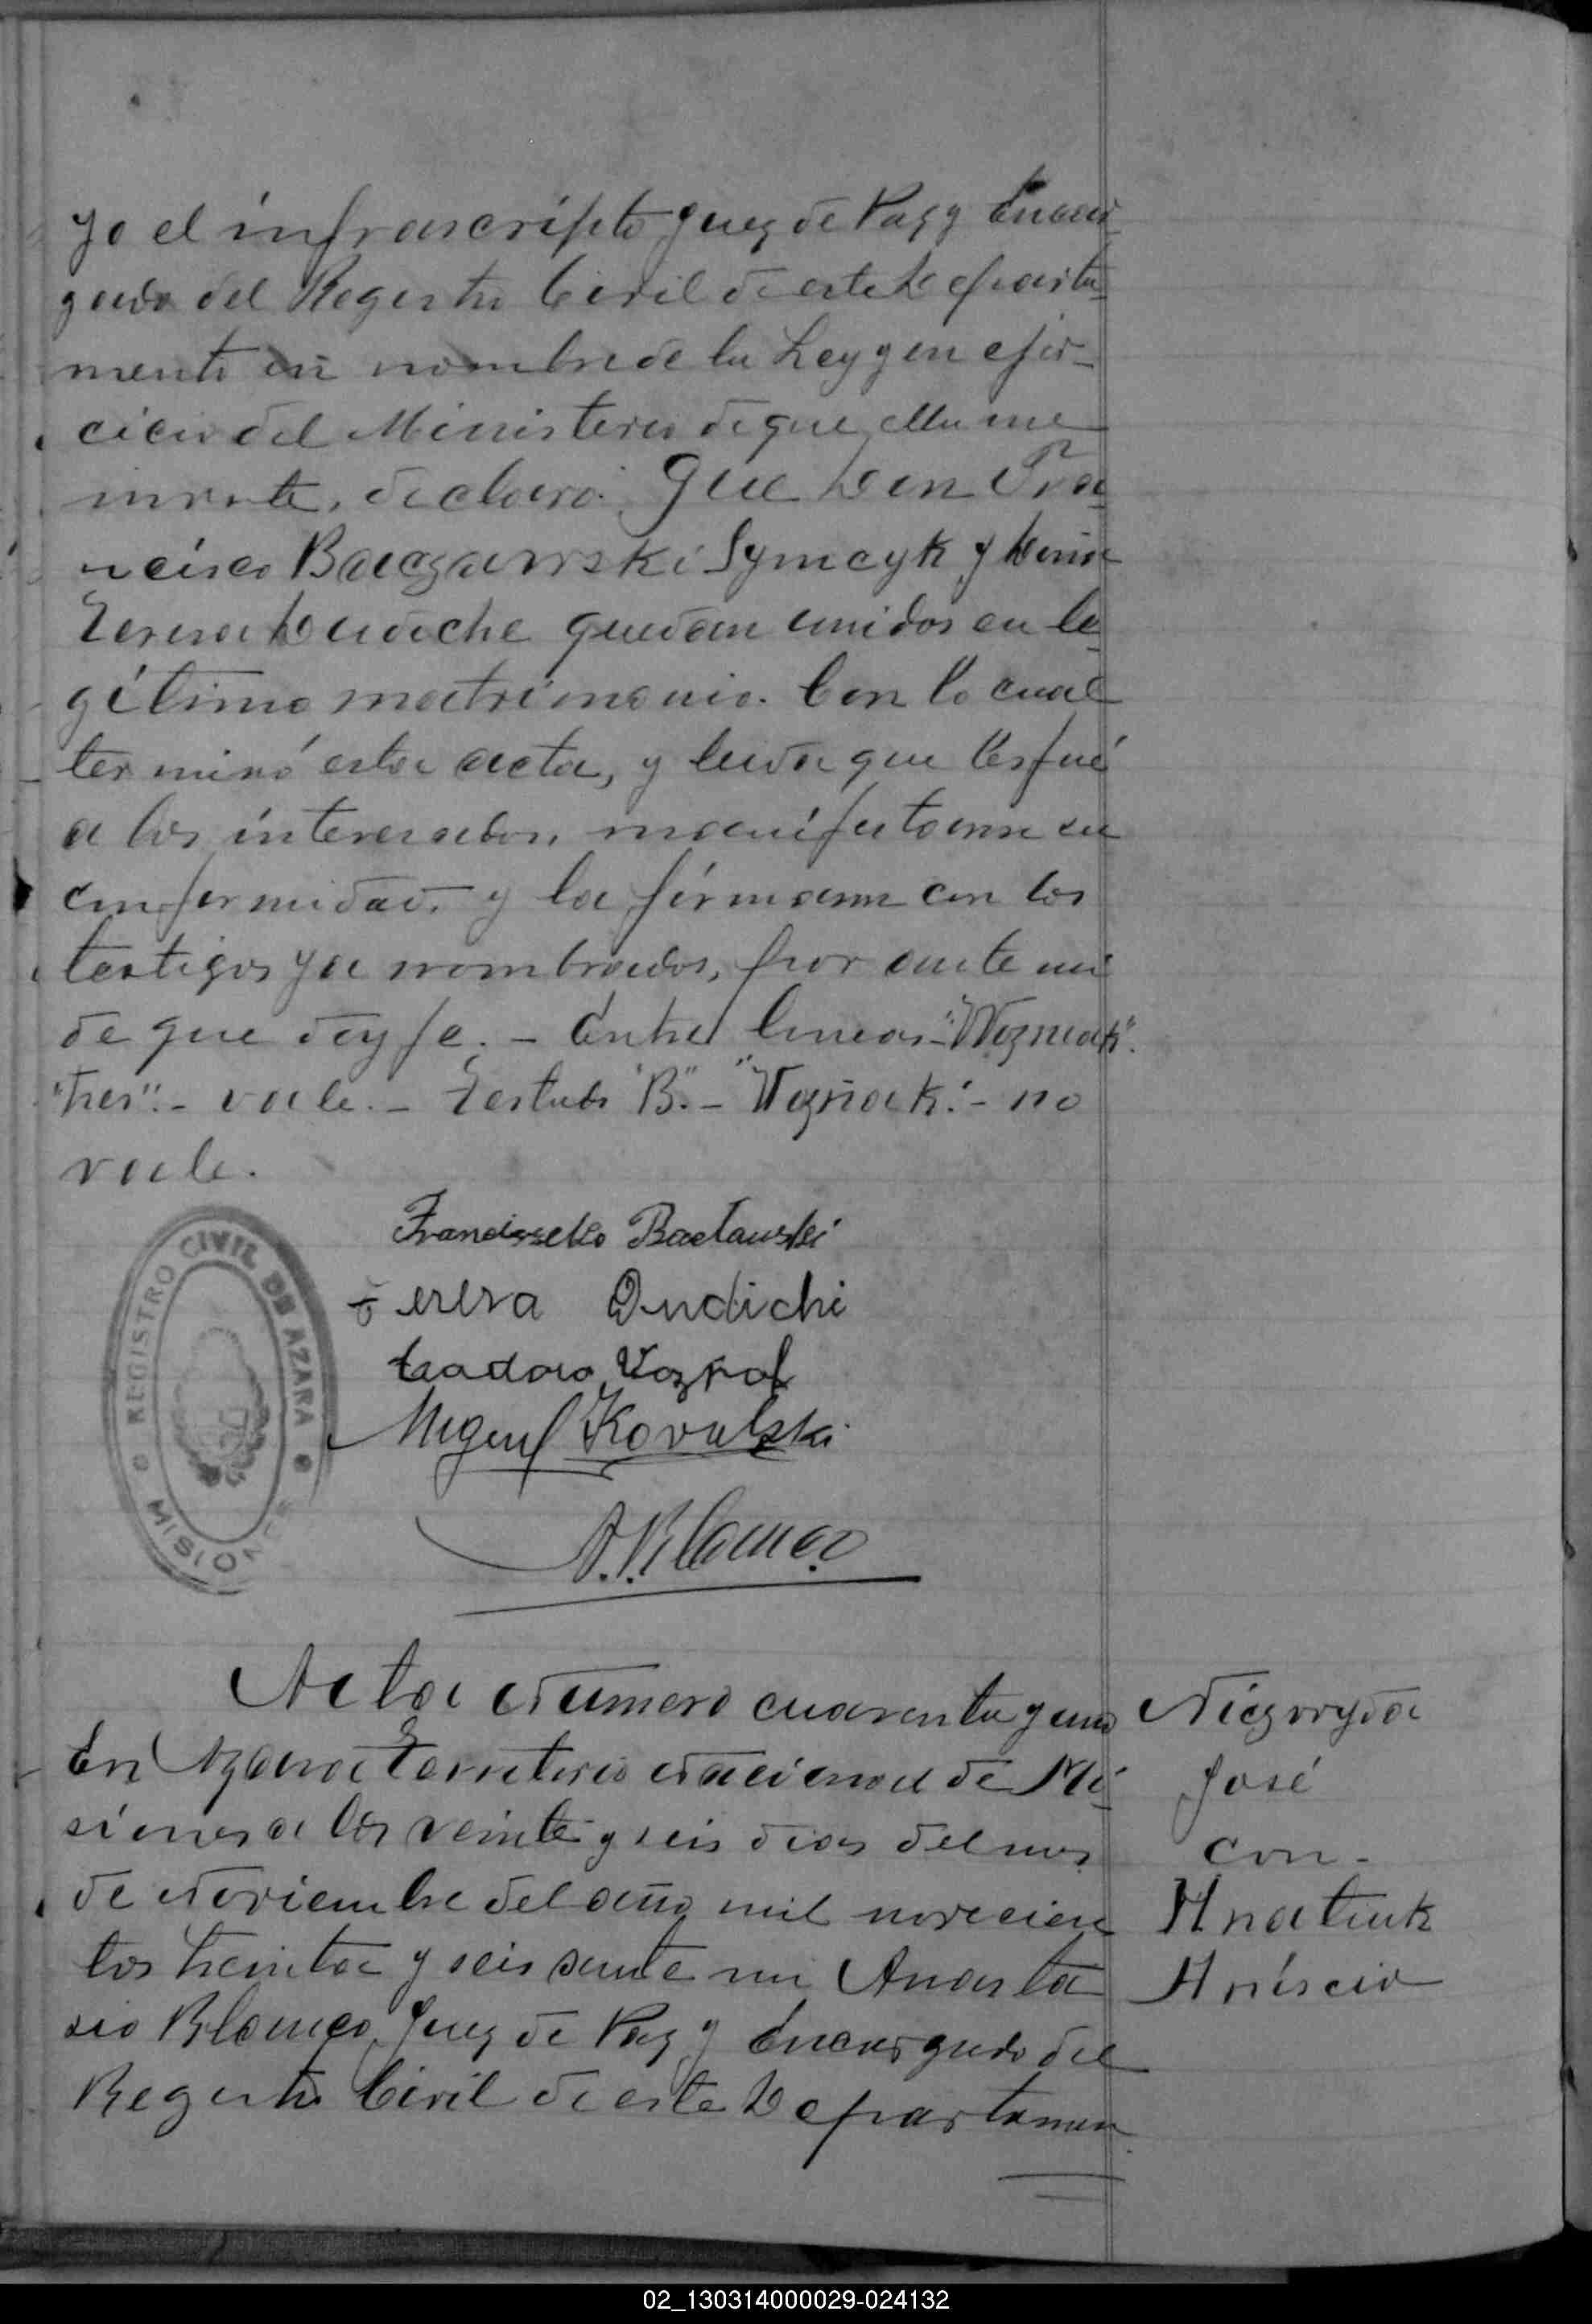 yo el infrascripto Juez de Paz y Encar-
gado del Registro Civil de este Departa-
mento en nombre de la Ley y en ejer-
cicio del Ministerio de que ella me
inviste, declaro: Que Don Fra-
ncisco Baczawski Symcyk y Doña
Teresa Dudiche quedan unidos en le-
gítimo matrimonio. Con lo cual
terminó esta acta, y leida que les fué
a los interesados, manifestaron su
conformidad y la firmaron con los
testigos ya nombrados, por ante mi
de que doy fe. - Entre lineas - "Wozniak".
"tres". - vale. - Testado "B". - "Wozñak". - no
vale.
Franciszeko Bacławski
Teresa Dudichi
teodoro Vozñak
Miguel Kovalski
A. Blanco
REGISTRO CIVIL DE AZARA
MISIONES
Acta Número cuarenta y uno
En Azara Territorio Nacional de Mi-
siones a los veinte y seis dias del mes
de Noviembre del año mil novecien
tos treinta y seis ante mi Anasta
sio Blanco, Juez de Paz y Encargado del
Registro Civil de este Departamen
Niezvryda
José
con -
Hnatiuk
Aniscia
02_130314000029-024132